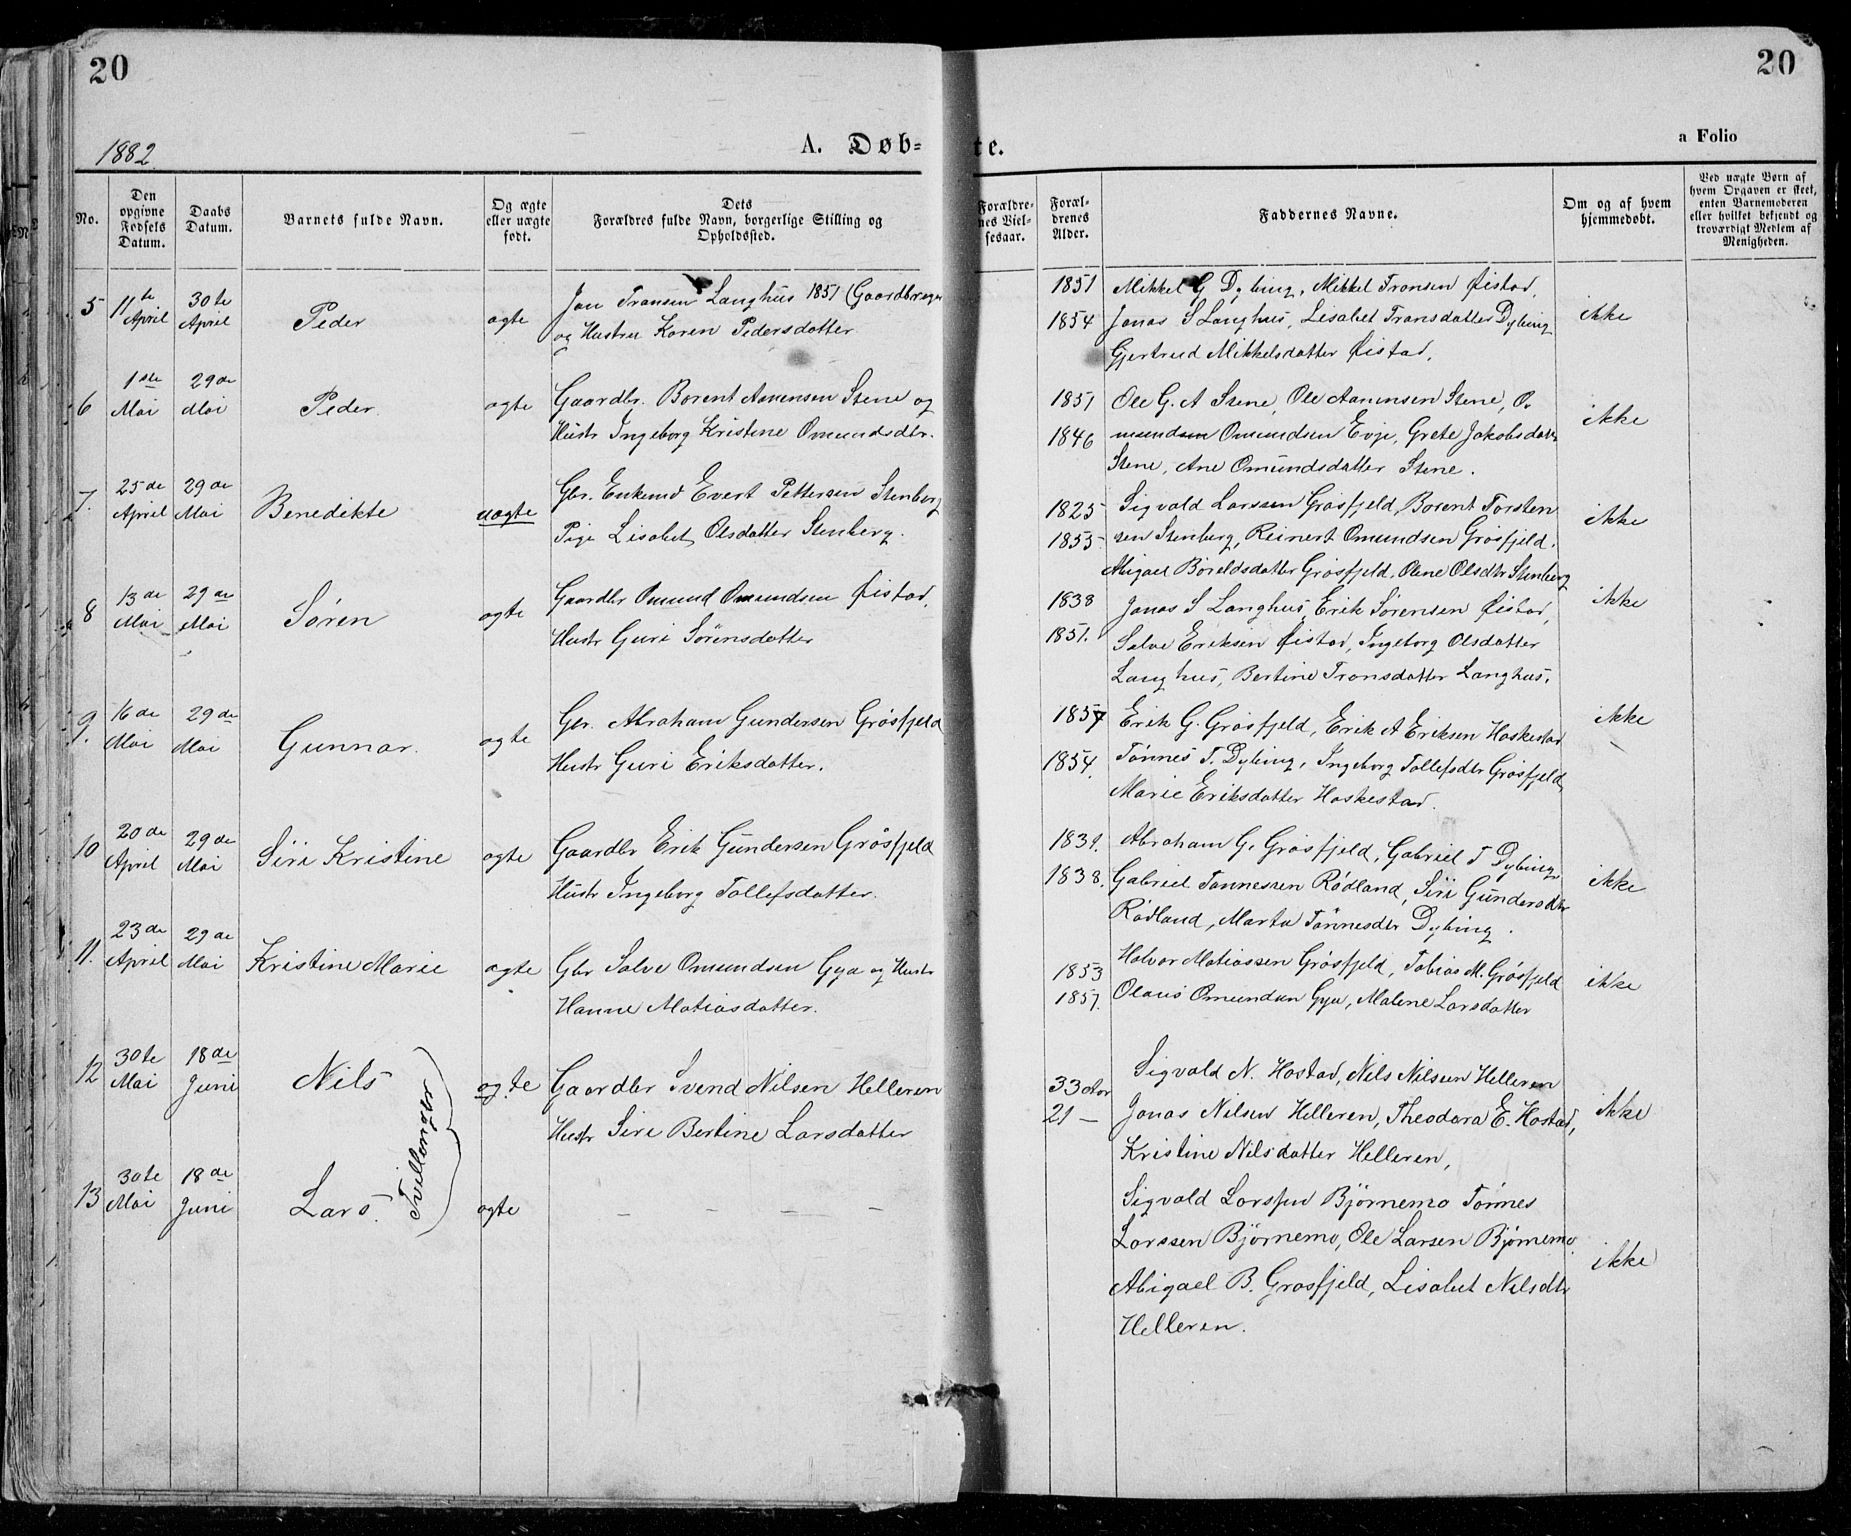 20
20
1882
A. Døb-
te.
a Folio
No.
Den opgivne Fødsels Datum.
Daabs Datum.
Barnets fulde Navn.
Og ægte eller uægte født.
Dets Forældres fulde Navn, borgerlige Stilling og Opholdssted.
Forældrenes Vielsesaar.
Forældrenes Alder.
Faddernes Navne.
Om og af hvem hjemmedøbt.
Ved uægte Børn af hvem Opgaven er skeet, enten Barnemoderen eller hvilket bekjendt og troværdigt Medlem af Menigheden.
5 11te April 30te April Peder ægte Jon Tronsen Langhus 1851 (Gaardbruger
og Hustru Karen Pedersdatter
1851 Mikkel G Dybing, Mikkel Tronsen Øistad,
1854 Jonas S Langhus, Lisabet Transdatter Dybing
Gjertrud Mikkelsdatter Øistad.
ikke
6 1ste Mai 29de Mai Peder ægte Gaardbr. Borent Aanensen Stene og
Hustr Ingeborg Kristine Omundsdtr.
1851 Ole G. A Stene, Ole Aanensen Stene, O-
1846 mundsen Omundsen Evje, Grete Jakobsdatr
Stene, Ane Omundsdatter Stene.
ikke
7. 25de April 29de Mai Benedikte uægte Gbr. Enkemd Evert Pettersen Stenberg
Pige Lisabet Olsdatter Stenberg.
1825 Sigvald Larssen Grøsfjeld, Borent Torsten
1853 sen Stenberg, Reinert Omundsen Grøsfjeld.
Abigael Böreldsdatter Grøsfjeld, Olene Olsdtr Stenberg
ikke
8 13de Mai 29de Mai Søren ægte Gaardbr Omund Omundsen Øistad,
Hustr Guri Sørensdatter
1838 Jonas S Langhus, Erik Sørensen Øistad,
1851. Salve Eriksen Øistad, Ingeborg Olsdatter
Langhus, Bertine Tronsdatter Langhus.
ikke
9. 16de Mai 29de Mai Gunnar. ægte Gbr. Abraham Gundersen Grøsfjeld
Hustr Guri Eriksdatter.
1857 Erik G. Grøsfjeld, Erik A Eriksen Haskestad
1854. Tønnes T. Dybing, Ingeborg Tollefsdtr Grøsfjeld
Marie Eriksdatter Haskestad.
ikke
10 20de April 29de Mai Siri Kristine ægte Gaardbr Erik Gundersen Grøsfjeld
Hustr Ingeborg Tollefsdatter.
1839. Abraham G. Grøsfjeld, Gabriel T Dybing,
1838. Gabriel Tønnessen Rødland, Siri Gundersdtr
Rødland, Marta Tønnesdtr Dybing.
ikke
11. 23de April 29de Mai Kristine Marie ægte Gbr Salve Omundsen Gya og Hustr
Hanne Matiasdatter.
1853 Halvor Matiassen Grøsfjeld, Tobias M. Grøsfjeld
1857. Olaus Omundsen Gya, Malene Larsdatter
ikke
12 30te Mai 18de Juni Nils ægte Gaardbr Svend Nilsen Helleren
Hustr Siri Bertine Larsdatter
Tvillinger
33 Aar Sigvald N. Hostad, Nils Nilsen Helleren
21 — Jonas Nilsen Helleren, Theodora E. Hostad,
Kristine Nilsdatter Helleren,
ikke
13 30te Mai 18de Juni Lars. ægte — — — —
Sigvald Larssen Bjørnemo Tønnes
Larssen Bjørnemo, Ole Larsen Bjørnemo
Abigael B. Grøsfjeld, Lisabet Nilsdtr
Helleren.
ikke